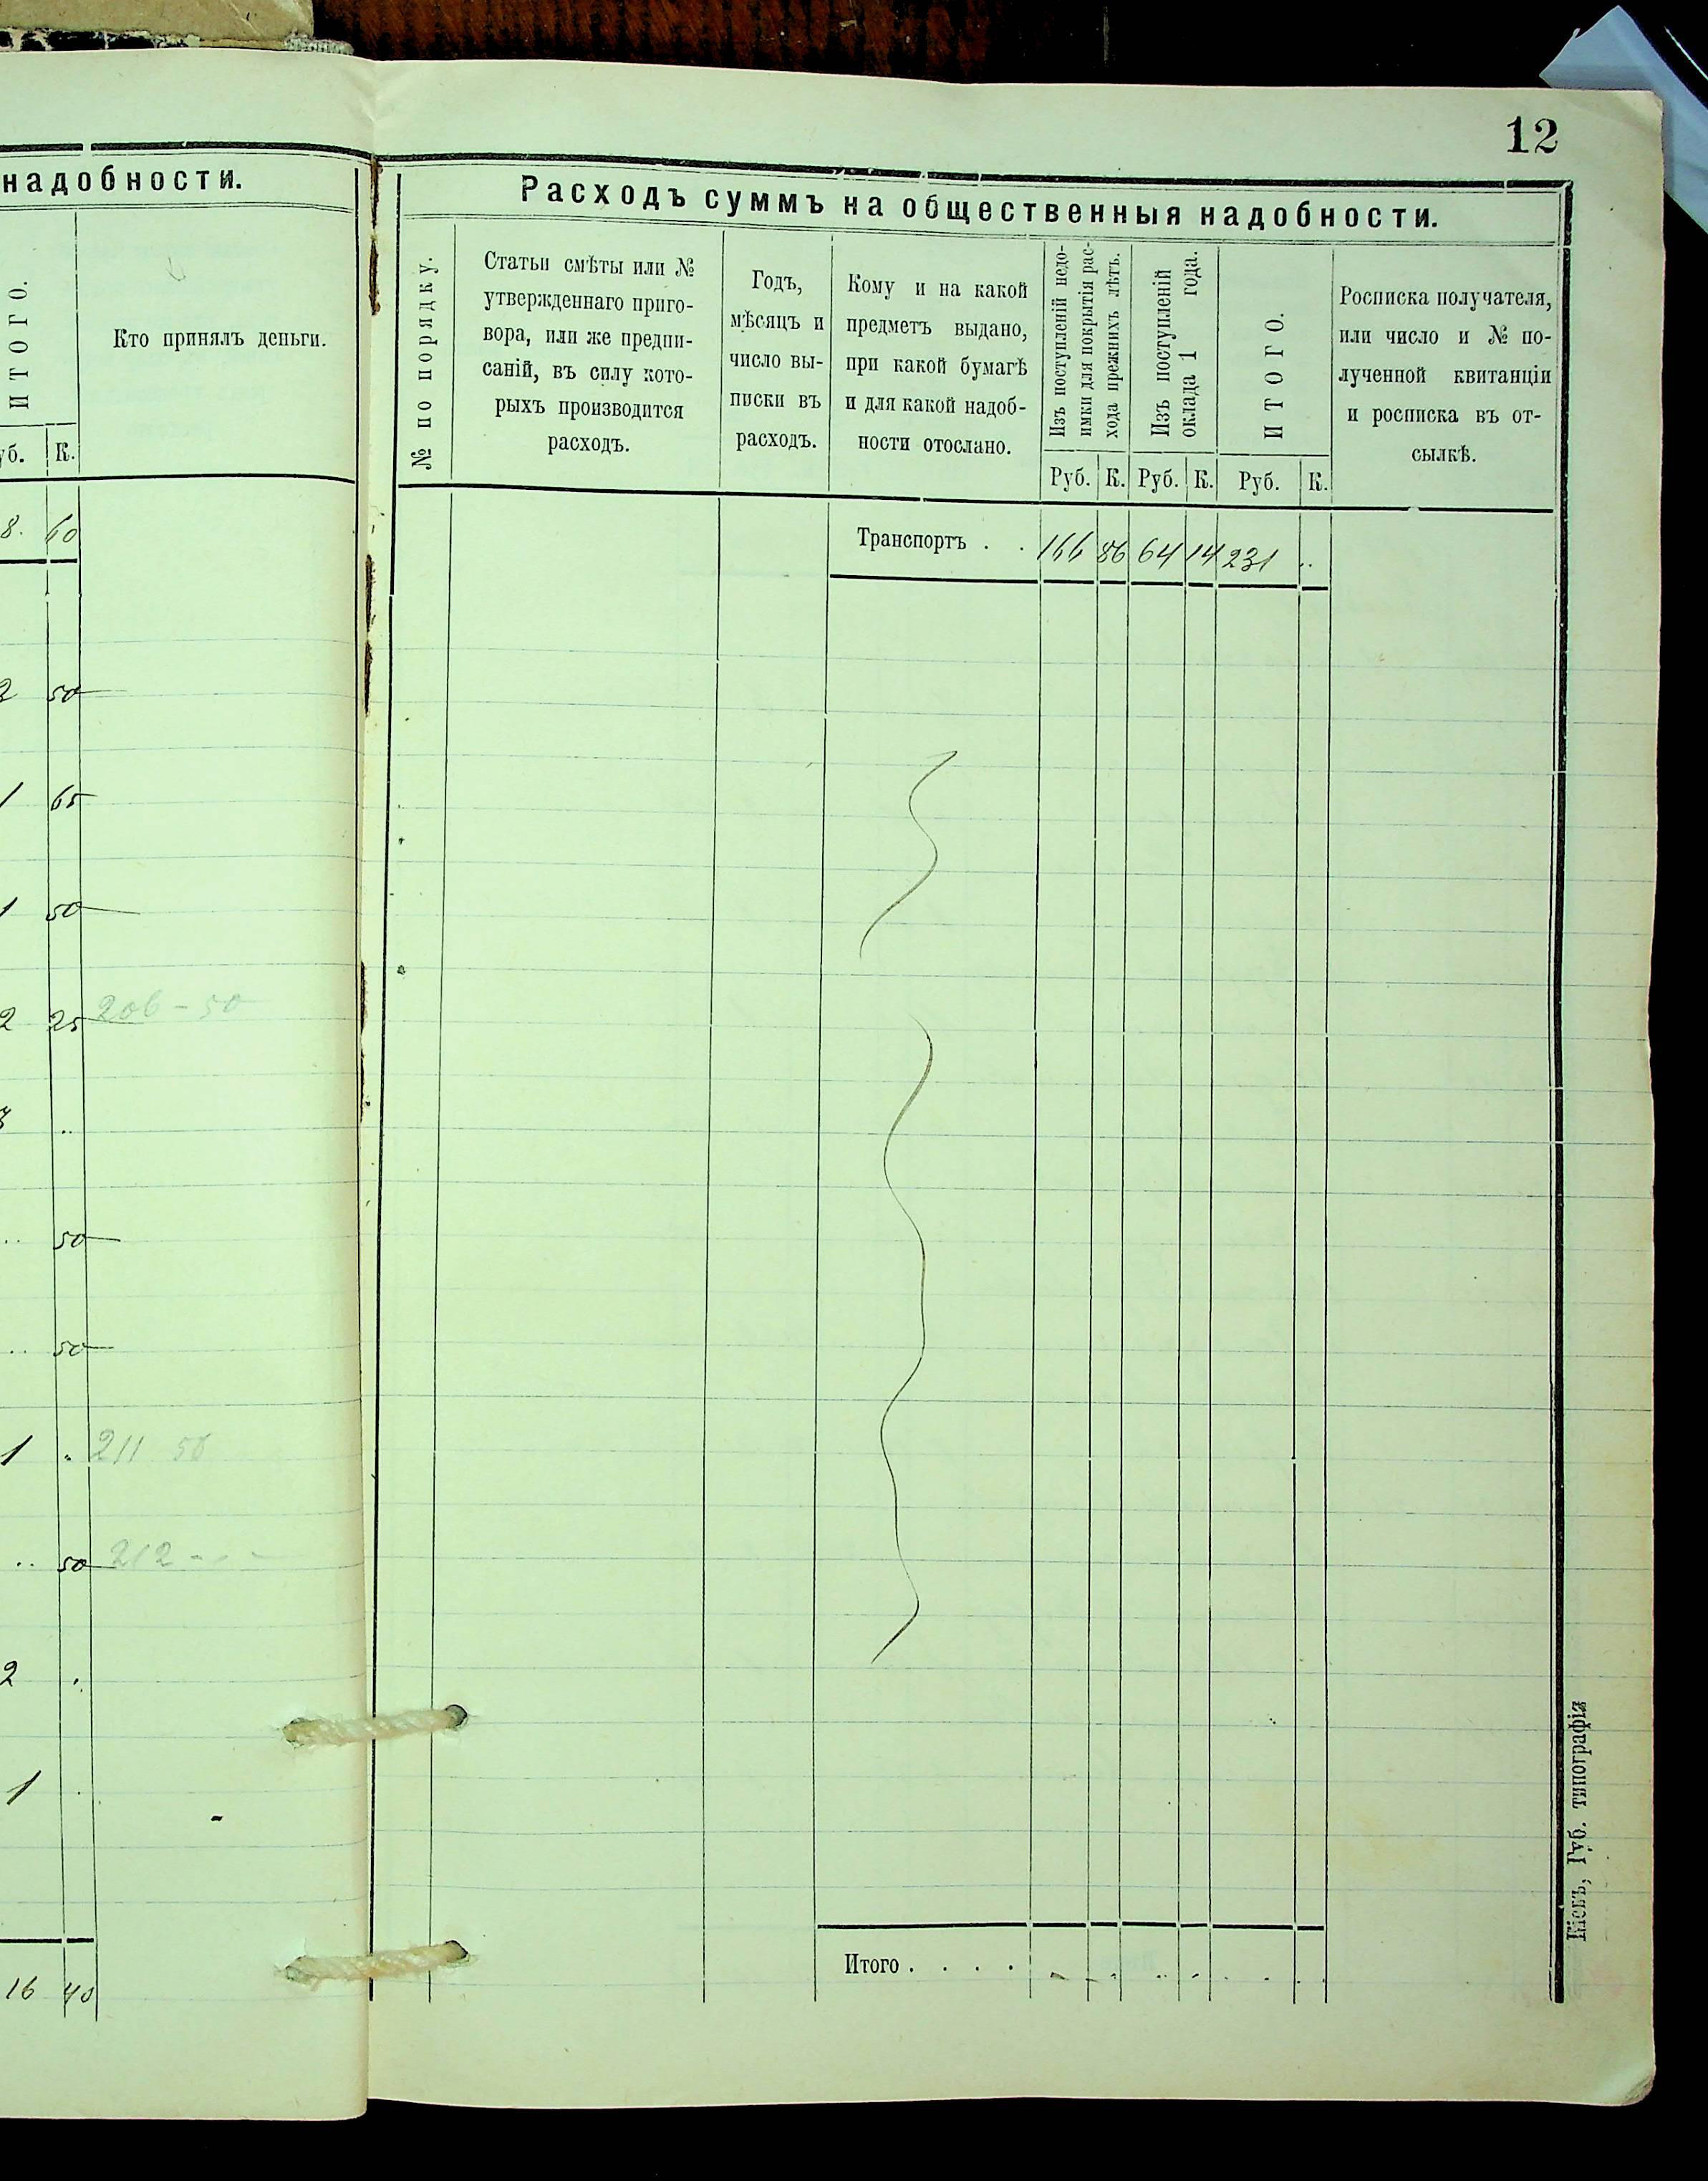 12
надобности.
ИТОГО.
Кто принялъ деньги.
уб. К.
8. 60
2 50
1 65
1 50
2 25 206 - 50
..
.. 50
.. 50
1 . 211 50
.. 50 212 - . -
2 .
1 .
16 40
Расходъ суммъ на общественныя надобности.
№ по порядку.
Статьи смѣты или №
утвержденнаго приго-
вора, или же предпи-
саній, въ силу кото-
рыхъ производится
расходъ.
Годъ,
мѣсяцъ и
число вы-
писки въ
расходъ.
Кому и на какой
предметъ выдано,
при какой бумагѣ
и для какой надоб-
ности отослано.
Изъ поступленій недо-
имки для покрытія рас-
хода прежнихъ лѣтъ.
Изъ поступленій
оклада 1 года.
ИТОГО.
Росписка получателя,
или число и № по-
лученной квитанціи
и росписка въ от-
сылкѣ.
Руб. К. Руб. К. Руб. К.
Транспортъ . . 166 86 64 14 231 ..
Итого . . . .
Кіевъ, Губ. типографія